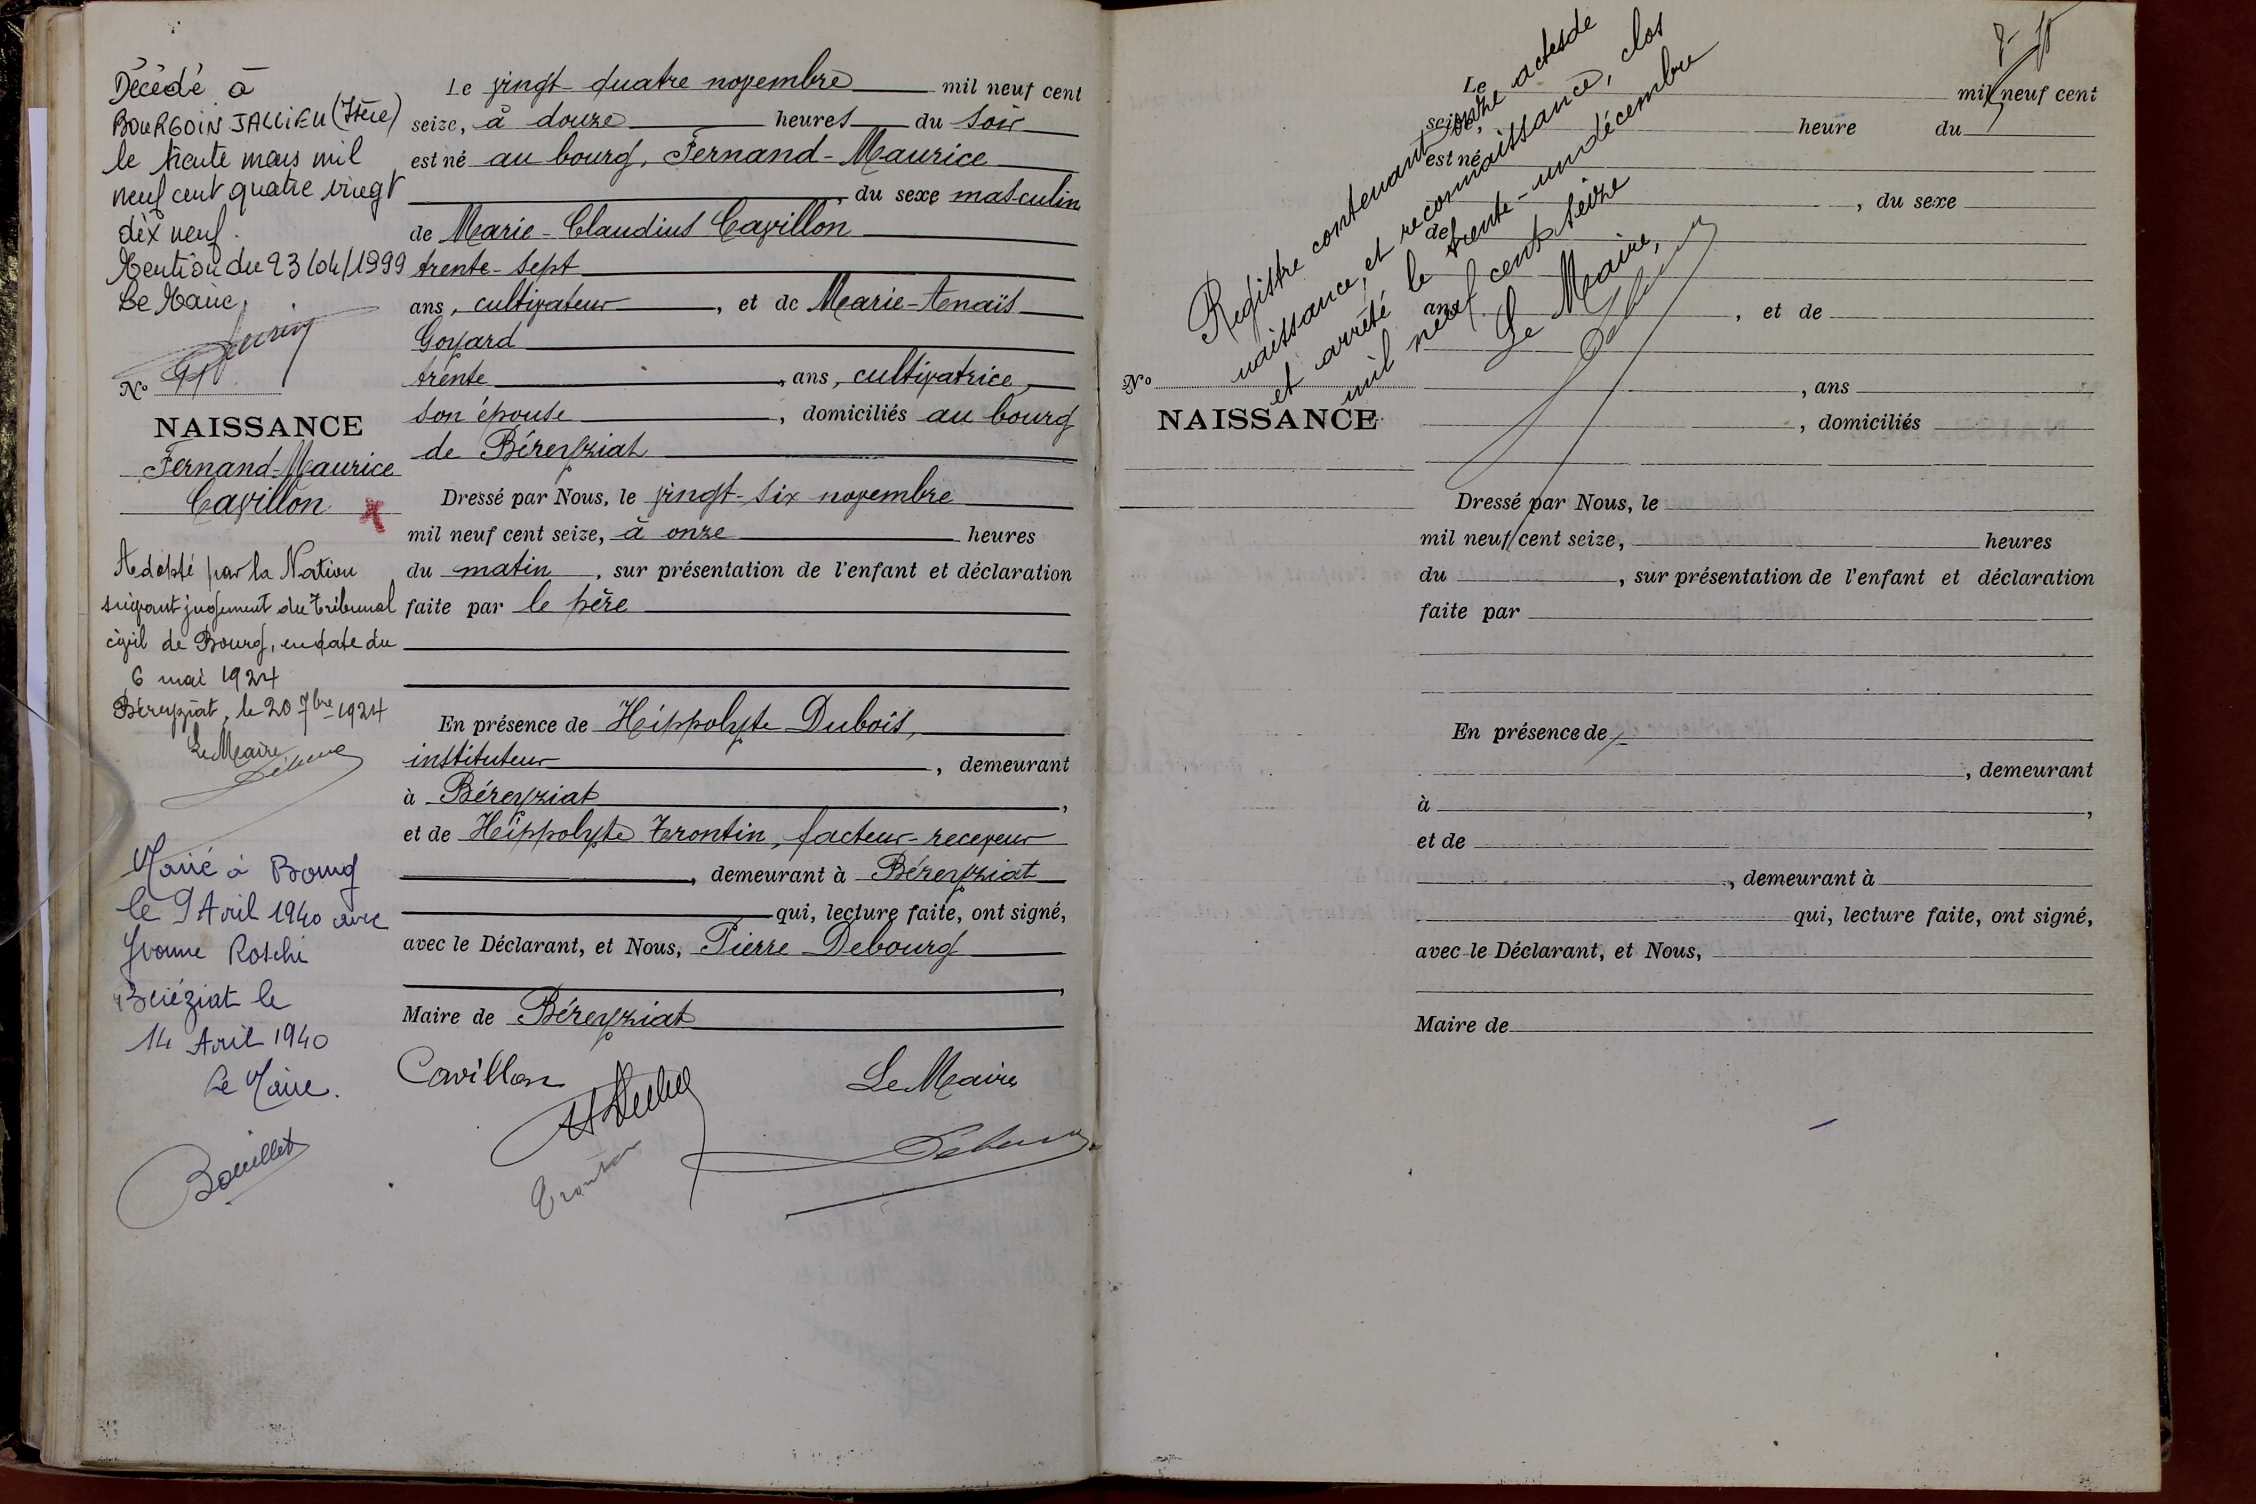 Décédé à
BOURGOIN JALLIEU (Isère)
le trente mars mil
neuf cent quatre vingt
dix neuf.
Mention du 23/04/1999
Le Maire,
No
NAISSANCE
Fernand-Maurice
Cavillon
Adopté par la Nation
suivant jugement du tribunal
civil de Bourg, en date du
6 mai 1924
Béreyziat, le 20 7bre 1924
Le Maire
Marié à Bourg
le 9 Avril 1940 avec
Yvonne
Béréziat le
14 Avril 1940
Le Maire.
Bouillet
Le vingt-quatre novembre mil neuf cent
seize, à douze heures du soir
est né au bourg, Fernand-Maurice
du sexe masculin
de Marie-Claudius Cavillon
trente-sept
ans, cultivateur, et de Marie-Tenaïs
Goyard
trente, ans, cultivatrice,
son épouse, domiciliés au bourg
de Béreyziat
Dressé par Nous, le vingt-six novembre
mil neuf cent seize, à onze heures
du matin, sur présentation de l'enfant et déclaration
faite par le père
En présence de Hippolyte Dubois,
instituteur, demeurant
à Béreyziat,
et de Hippolyte Trontin, facteur-receveur
, demeurant à Béreyziat
qui, lecture faite, ont signé,
avec le Déclarant, et Nous, Pierre Debourg
,
Maire de Béreyziat
Cavillon
Le Maire
Registre contenant onze actes de
naissance, et reconnaissance, clos
et arrêté le trente-un décembre
mil neuf cent seize
Le Maire,
Le mil neuf cent
seize, heure du
est né
, du sexe
de
ans, et de
No
, ans
NAISSANCE
, domiciliés
Dressé par Nous, le
mil neuf cent seize, heures
du, sur présentation de l'enfant et déclaration
faite par
En présence de
, demeurant
à,
et de
, demeurant à
qui, lecture faite, ont signé,
avec le Déclarant, et Nous,
Maire de